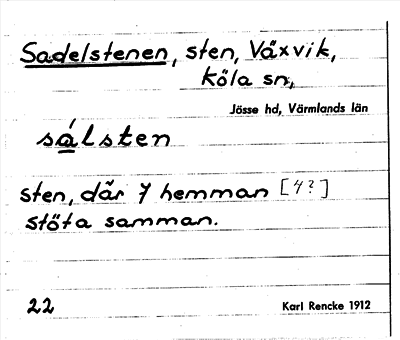 Sadelstenen, sten, Växvik,
Köla sn,
Jösse hd, Värmlands län
sálsten
sten, där 7 hemman [4?]
stöta samman.
22
Karl Rencke 1912